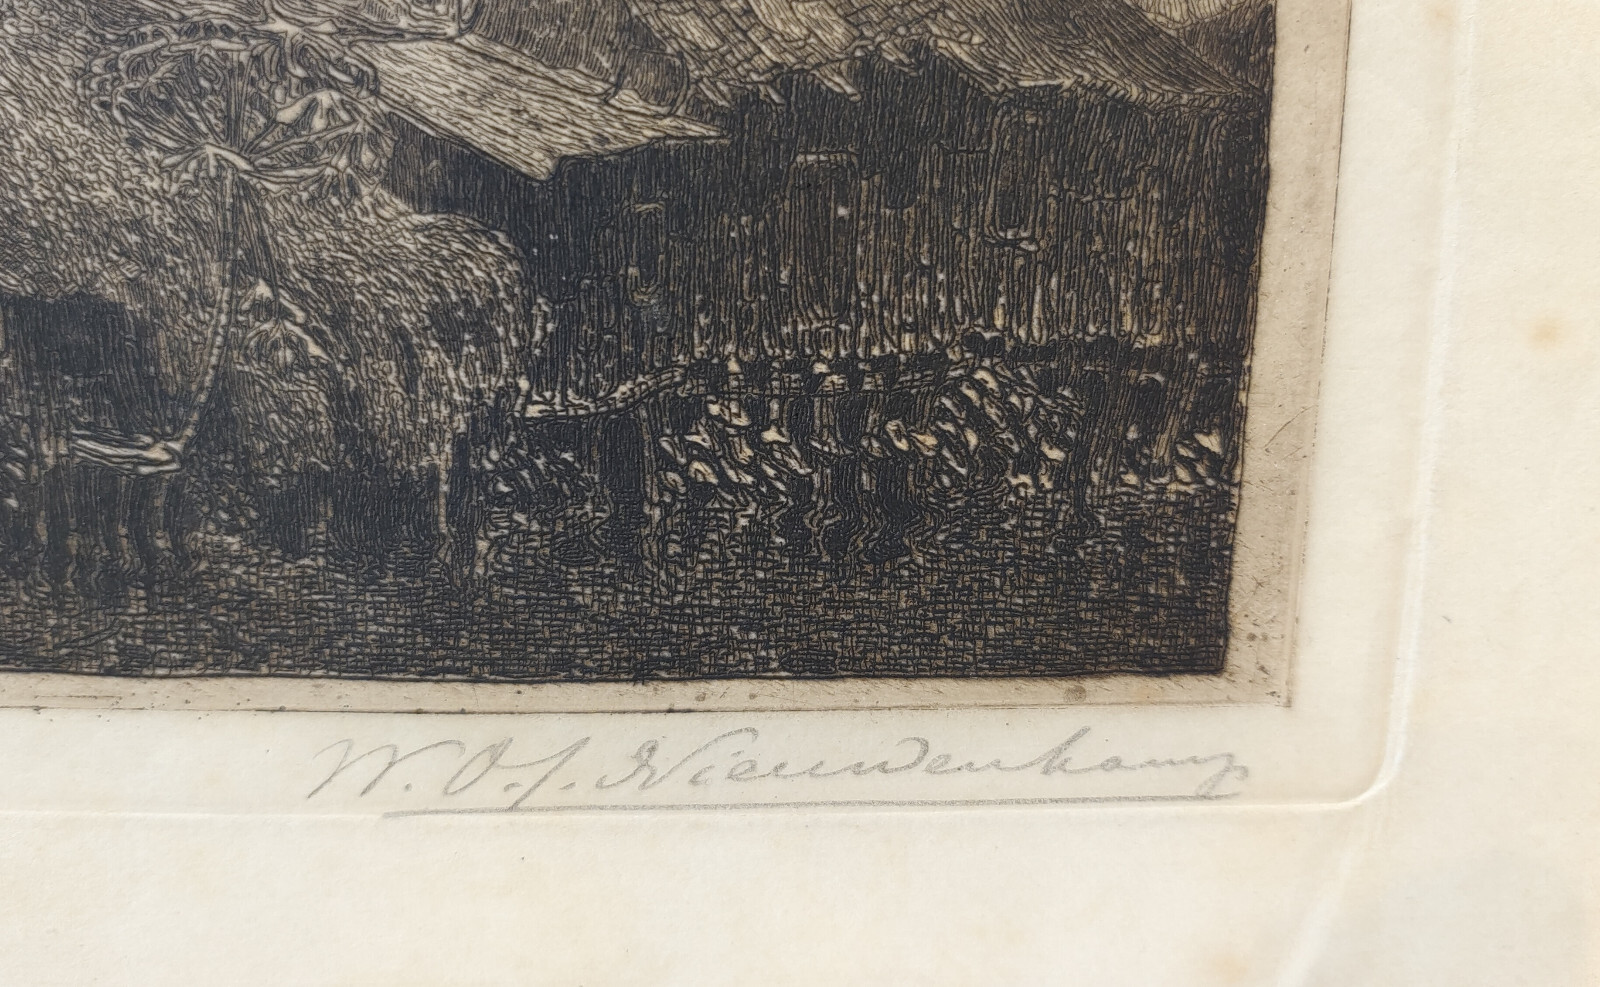 W. O. J. Nieuwenkamp